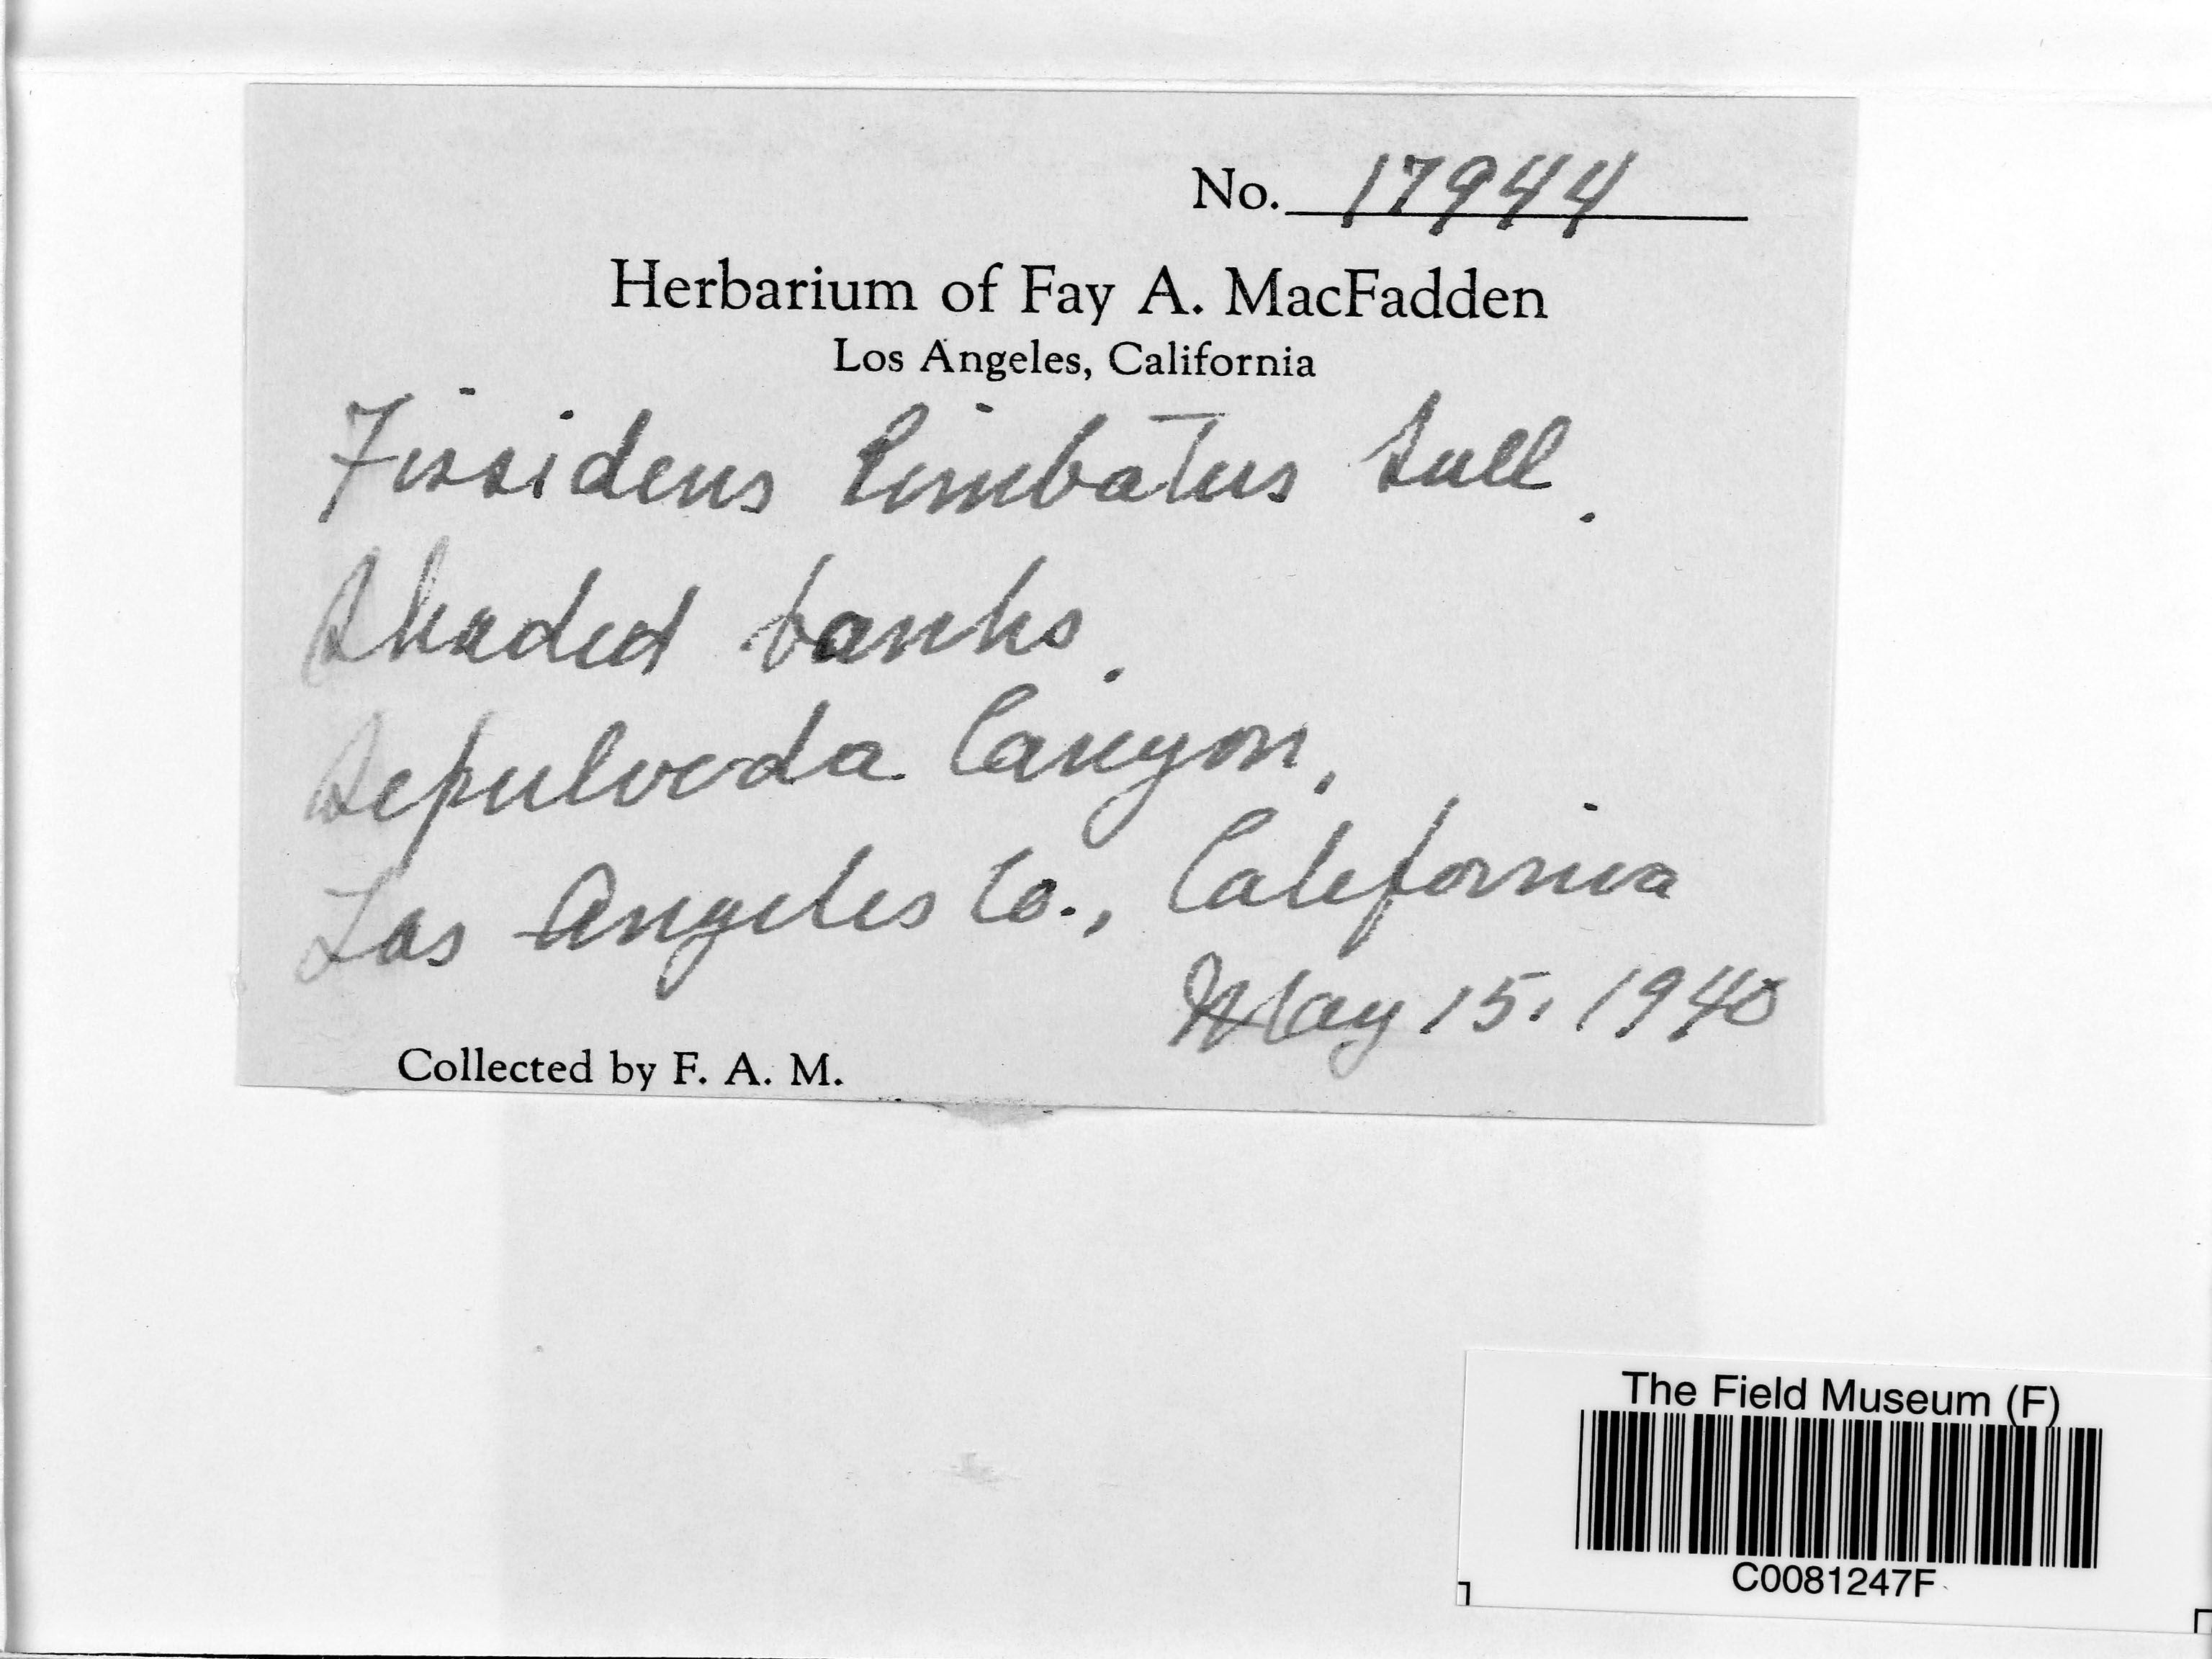 No. 17944
Herbarium of Fay A. MacFadden
Los Angeles, California
Fissidens limbatus Sull.
Shaded banks.
Sepulveda Canyon,
Los Angeles Co., California
May 15, 1940
Collected by F. A. M.
The Field Museum (F)
C0081247F